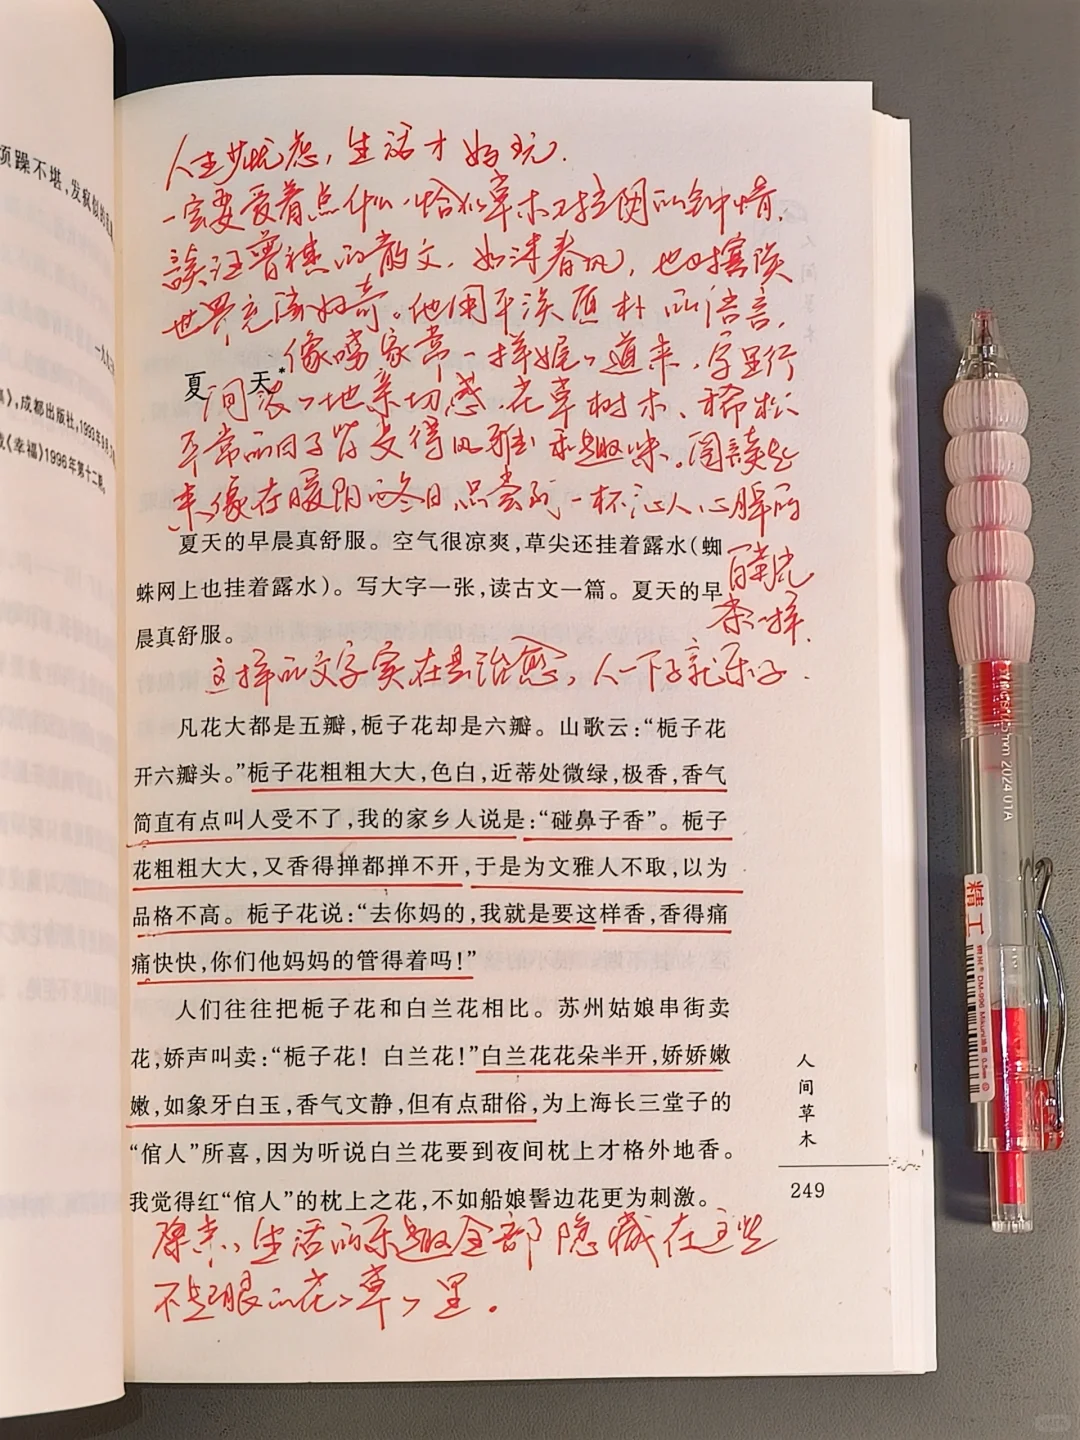 烦躁不堪，发疯似的
成都出版社，1993年
《幸福》1996年第十二期。
人生少忧虑，生活才好玩．
一定要爱着点什么，恰似草木对光阴的钟情．
读汪曾祺的散文，如沐春风，也对
世界充满好奇。他用平淡质朴的语言，
像唠家常一样娓々道来，字里行
夏 天*
间浓々地亲切感．花草树木、稀松
平常的日子皆变得风雅和趣味。阅读起
来像在暖阳的冬日品尝到一杯沁人心脾的
夏天的早晨真舒服。空气很凉爽，草尖还挂着露水（蜘
蛛网上也挂着露水）。写大字一张，读古文一篇。夏天的早
茶一样．
晨真舒服。
这样的文字实在是治愈，人一下子就乐了．
凡花大都是五瓣，栀子花却是六瓣。山歌云：“栀子花
开六瓣头。”栀子花粗粗大大，色白，近蒂处微绿，极香，香气
简直有点叫人受不了，我的家乡人说是：“碰鼻子香”。栀子
花粗粗大大，又香得掸都掸不开，于是为文雅人不取，以为
品格不高。栀子花说：“去你妈的，我就是要这样香，香得痛
痛快快，你们他妈妈的管得着吗！”
人们往往把栀子花和白兰花相比。苏州姑娘串街卖
花，娇声叫卖：“栀子花！白兰花！”白兰花花朵半开，娇娇嫩
嫩，如象牙白玉，香气文静，但有点甜俗，为上海长三堂子的
“倌人”所喜，因为听说白兰花要到夜间枕上才格外地香。
我觉得红“倌人”的枕上之花，不如船娘髻边花更为刺激。
人间草木
249
原来，生活的乐趣全部隐藏在这些
不起眼的花々草々里。
精工
DM-996
0.5mm
2024.01A